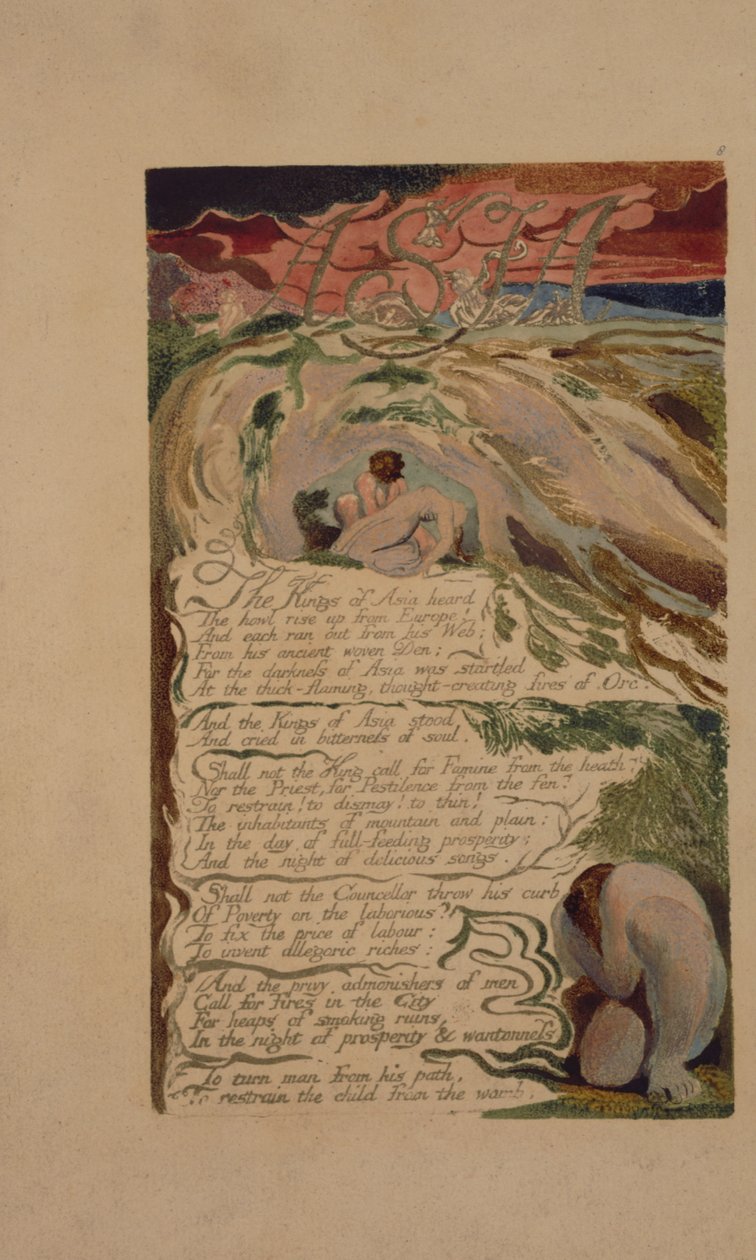 8
ASIA
The Kings of Asia heard
The howl rise up from Europe!
And each ran out from his Web;
From his ancient woven Den;
For the darkness of Asia was startled
At the thick-flaming, thought-creating fires of Orc.
And the Kings of Asia stood
And cried in bitterness of soul.
Shall not the King call for Famine from the heath?
Nor the Priest, for Pestilence from the fen?
To restrain! to dismay! to thin!
The inhabitants of mountain and plain;
In the day, of full-feeding prosperity;
And the night of delicious songs.
Shall not the Councellor throw his curb
Of Poverty on the laborious?
To fix the price of labour;
To invent allegoric riches:
And the privy admonishers of men
Call for Fires in the City
For heaps of smoking ruins,
In the night of prosperity & wantonness
To turn man from his path,
To restrain the child from the womb,